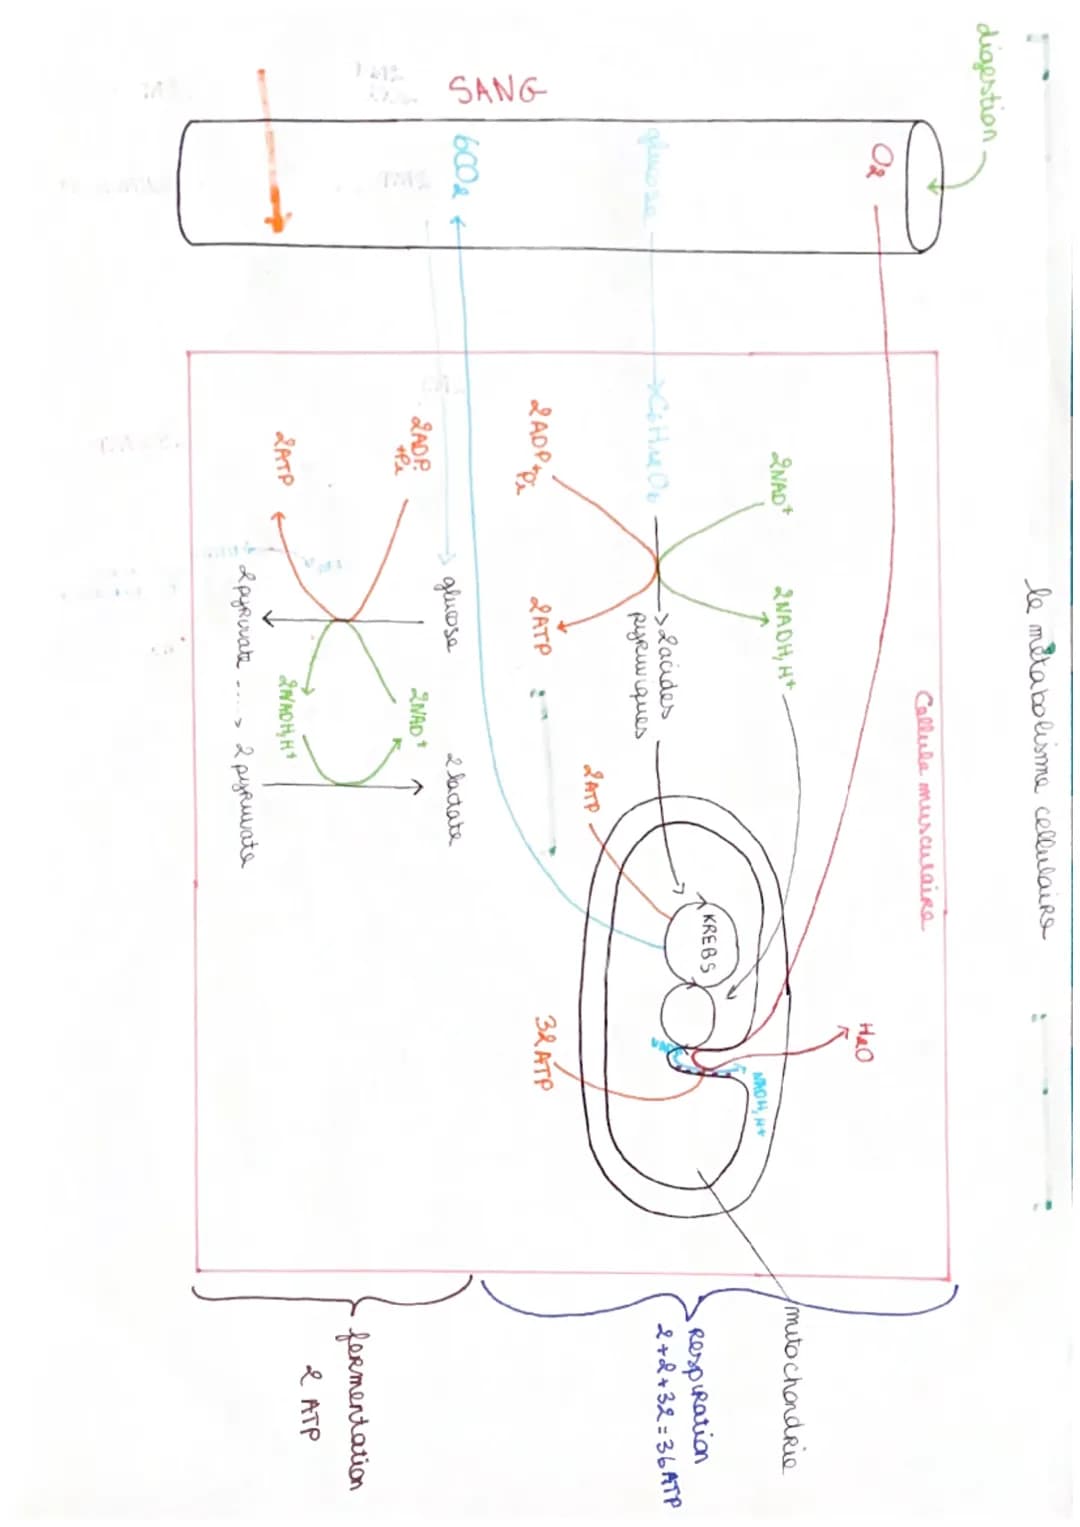 le métabolisme cellulaire
digestion
SANG
O₂
glucose
6CO₂
Cellule musculaire
2NAD⁺
2NADH,H⁺
C₆H₁₂O₆
2 acides
pyruviques
2ADP+Pi
2ATP
2ATP
KREBS
H₂O
NADH,H⁺
32 ATP
mitochondrie
glucose
2 lactate
2ADP
+Pi
2NAD⁺
2ATP
2NADH,H⁺
2 pyruvate ....> 2 pyruvate
RESPIRATION
2+2+32=36 ATP
fermentation
2 ATP